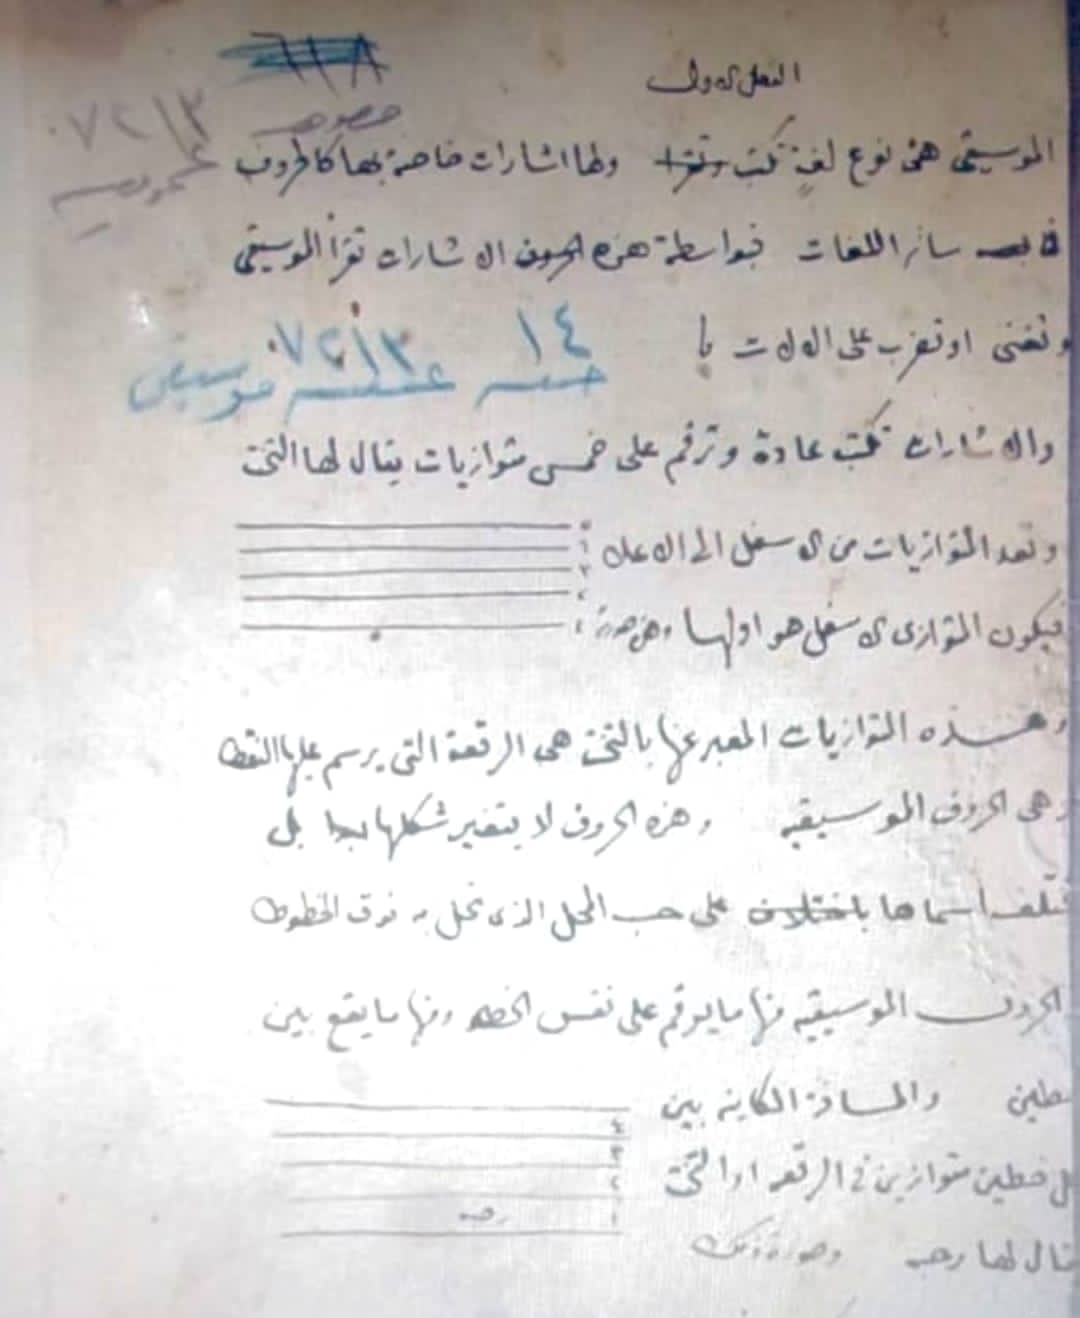 ٦١٨
الفصل الاول
خصوصية ٧٢١٣٠
عمومية
الموسيقى هى نوع لغة تكتب وتقرا ولها اشارات خاصة بها كالحروف
سائر اللغات فبواسطة هذه الحروف الاشارات تقرأ الموسيقى
وتغنى او تضرب على الالات بها
١٤ ٧٢١٣٠
موسيقى
والاشارات تكتب عادة وترقم على خمس متوازيات يقال لها التخت
وتعد المتوازيات من الاسفل الى الاعلى
فيكون المتوازى الاسفل هو اولها وهى صورته
وهذه المتوازيات المعبر عنها بالتخت هى الرقعة التى يرسم عليها النقط
وهى الحروف الموسيقيه وهذه الحروف لا يتغير شكلها ابدا بل
تختلف اسماها باختلاف على حسب المحل الذى تحل به فوق الخطوط
الحروف الموسيقيه منها ما يرقم على نفس الخط ومنها ما يقع بين
خطين والمسافة الكاينه بين
كل خطين متوازين فى الرقعه او التخت
يقال لها رحبه وصورة ذلك
٤
٣
٢
١
رحبه